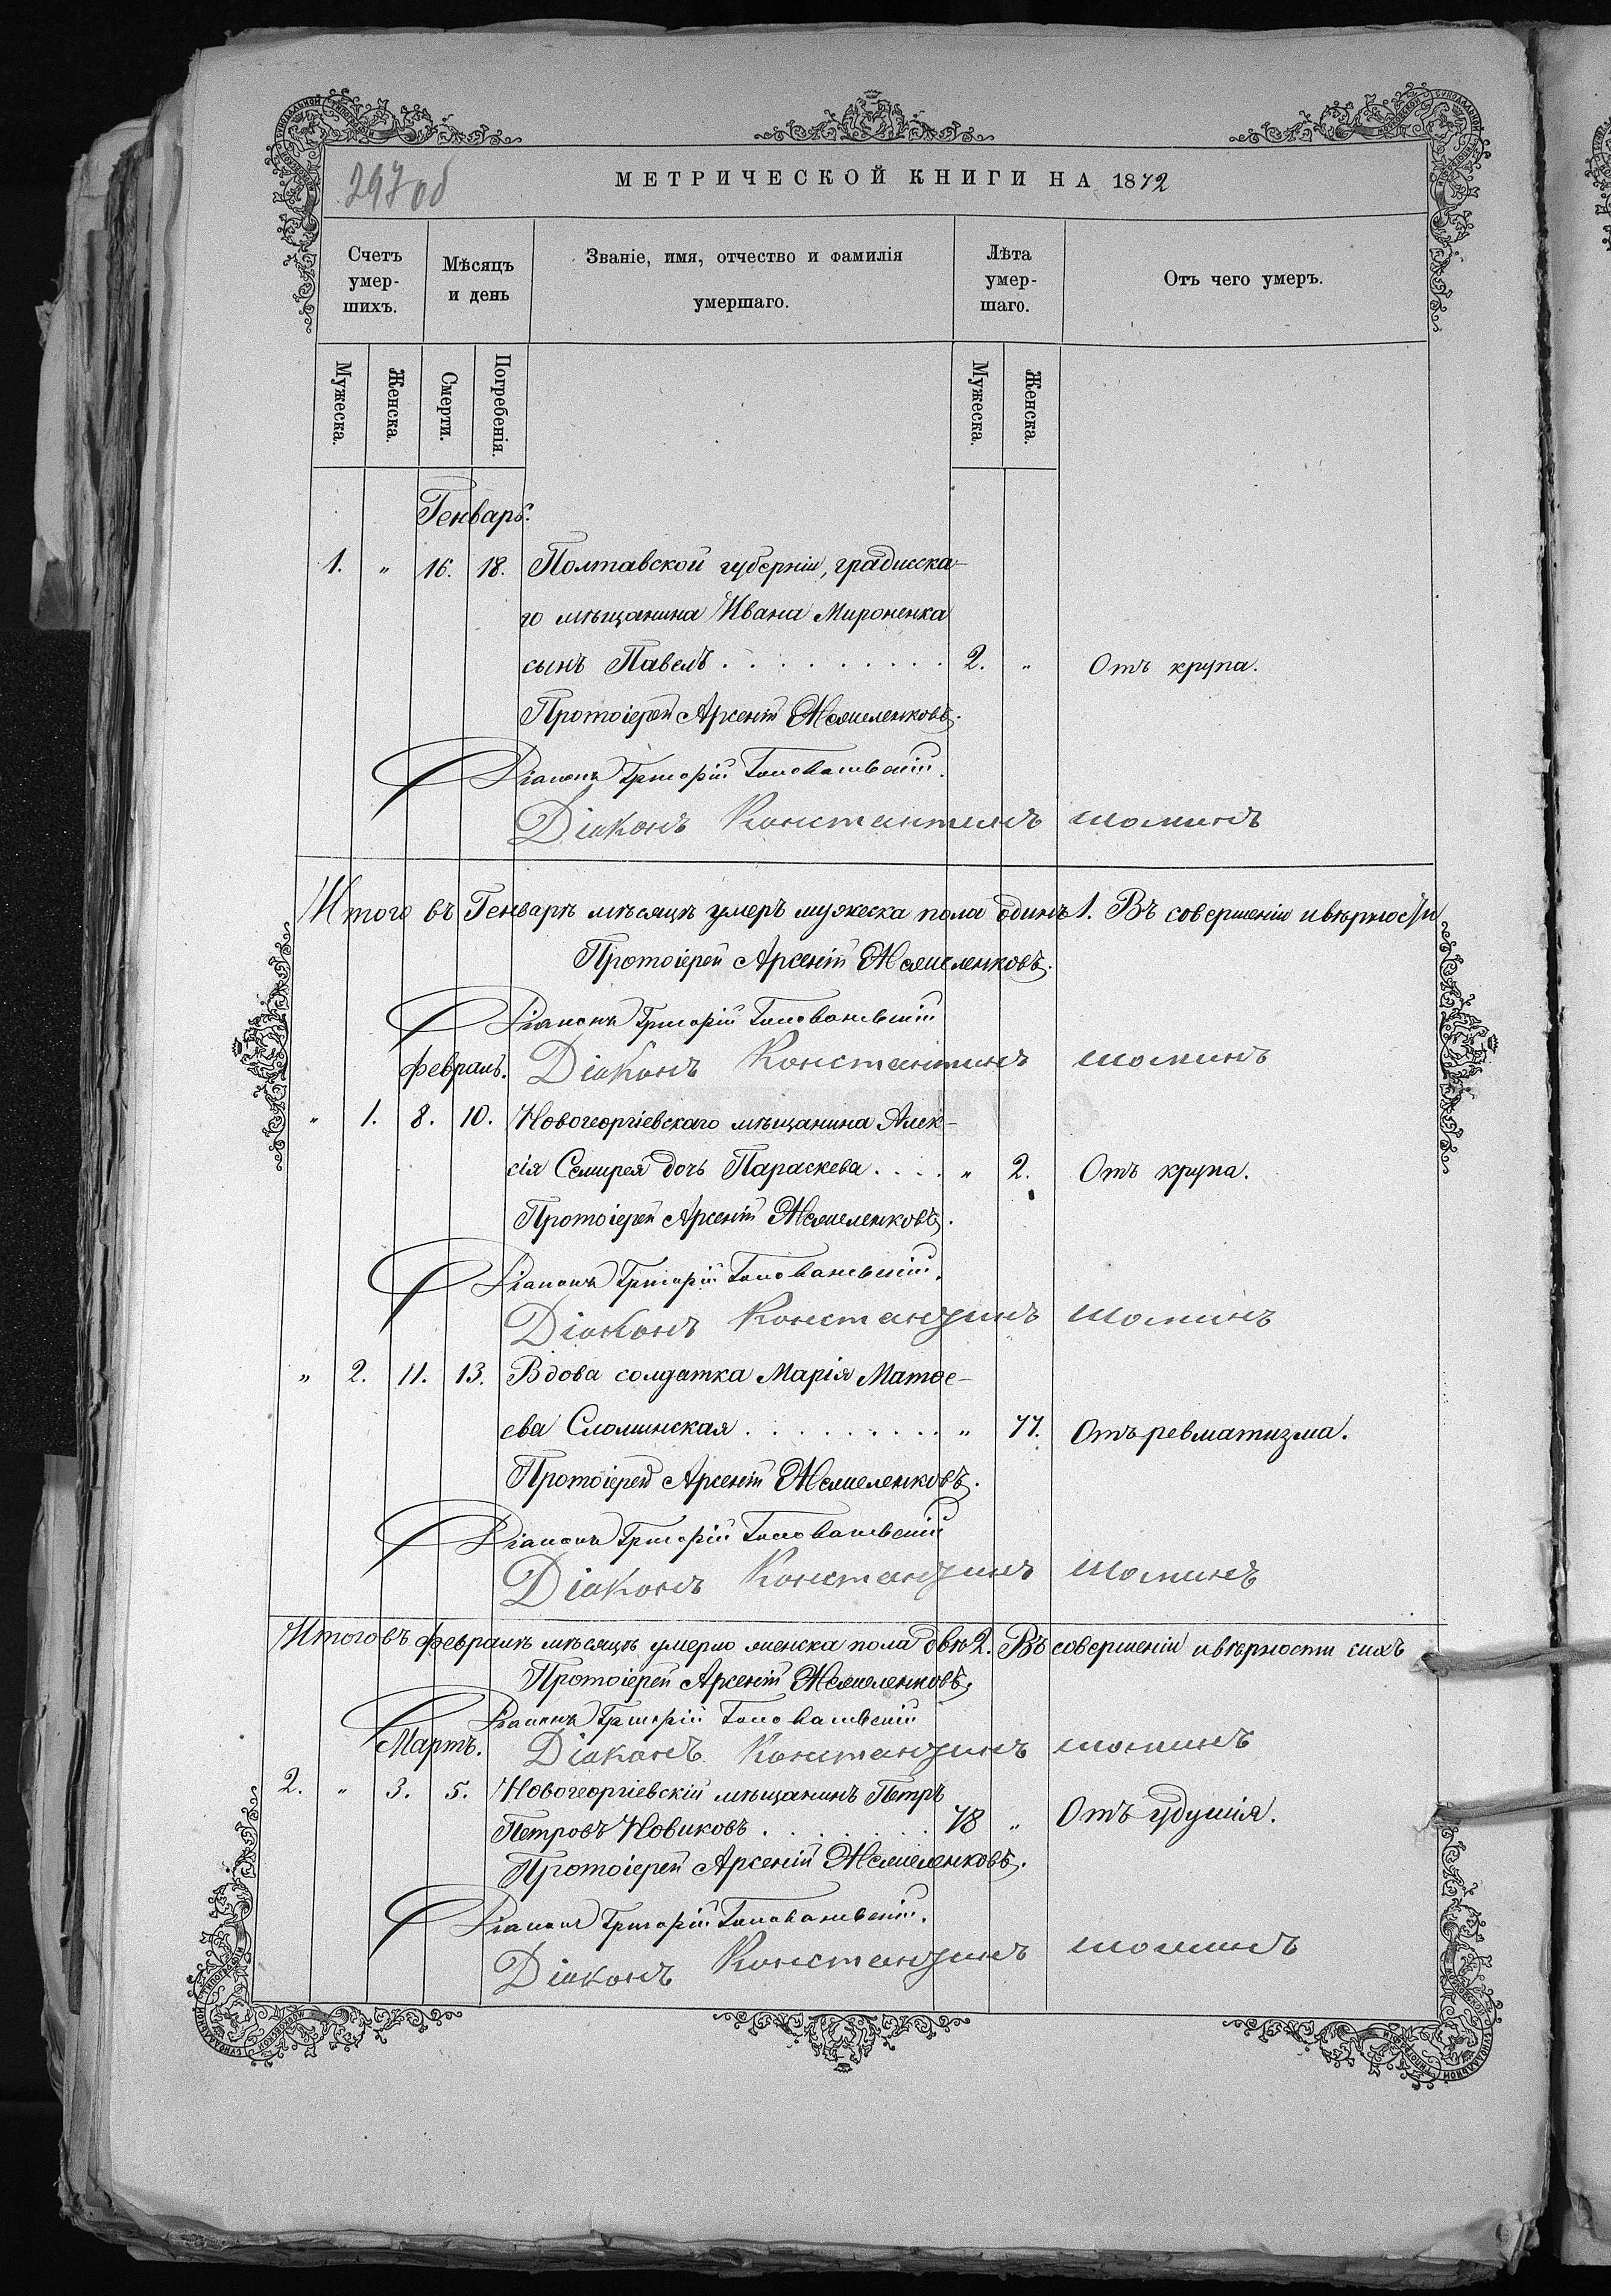 297 об
МЕТРИЧЕСКОЙ КНИГИ НА 1872
Счетъ умер-шихъ.
Мѣсяцъ и день
Званіе, имя, отчество и фамилія умершаго.
Лѣта умер-шаго.
Отъ чего умеръ.
Мужеска.
Женска.
Смерти.
Погребенія.
Мужеска.
Женска.
Генварь.
1. " 16. 18. Полтавской губерніи, градисска-
го мѣщанина Ивана Мироненка
сынъ Павелъ . . . . . . . . . 2. " Отъ крупа.
Протоіерей Арсеній
Діаконъ Григорій
Діаконъ Константинъ
Итого въ Генварѣ мѣсяцѣ умеръ мужеска пола одинъ 1. Въ совершеніи и вѣрности
Протоіерей Арсеній
Діаконъ Григорій
Февраль. Діаконъ Константинъ
" 1. 8. 10. Новогеоргіевскаго мѣщанина Алек-
сія Семирея дочь Параскева . . . . " 2. Отъ крупа.
Протоіерей Арсеній
Діаконъ Григорій
Діаконъ Константинъ
" 2. 11. 13. Вдова солдатка Марія Матѳе-
ева Сломинская . . . . . . . . " 77. Отъ ревматизма.
Протоіерей Арсеній
Діаконъ Григорій
Діаконъ Константинъ
Итого въ Февралѣ мѣсяцѣ умерло женска пола двѣ 2. Въ совершеніи и вѣрности сихъ
Протоіерей Арсеній
Діаконъ Григорій
Мартъ. Діаконъ Константинъ
2. " 3. 5. Новогеоргіевскій мѣщанинъ Петръ
Петровъ Новиковъ . . . . . . . 78 " Отъ удушія.
Протоіерей Арсеній
Діаконъ Григорій
Діаконъ Константинъ